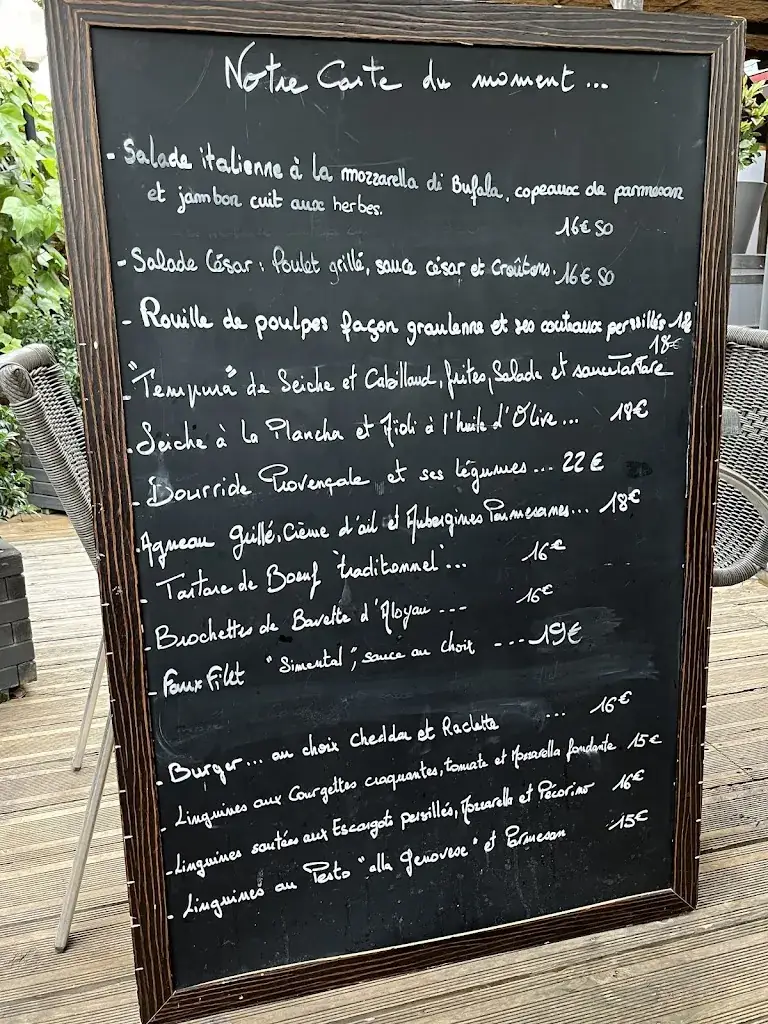 Notre Carte du moment...
- Salade italienne à la mozzarella di Bufala, copeaux de parmesan
et jambon cuit aux herbes.
16€50
- Salade César : Poulet grillé, sauce césar et Croûtons. 16€50
- Rouille de poulpes façon graulenne et ses couteaux persillés 18€
18€
- "Tempura" de Seiche et Cabillaud, frites, Salade et sauce Tartare
- Seiche à la Plancha et Aïoli à l'huile d'Olive... 18€
- Bourride Provençale et ses légumes... 22€
- Agneau grillé, Crème d'ail et Aubergines Parmesanes... 18€
- Tartare de Boeuf "traditionnel"... 16€
- Brochettes de Bavette d'Aloyau --- 16€
- Faux Filet "Simental", sauce au choix --- 19€
- Burger... au choix Cheddar et Raclette ... 16€
- Linguines aux Courgettes craquantes, tomate et Mozzarella fondante 15€
- Linguines sautées aux Escargots persillés, Mozzarella et Pécorino 16€
- Linguines au Pesto "alla genovese" et Parmesan 15€